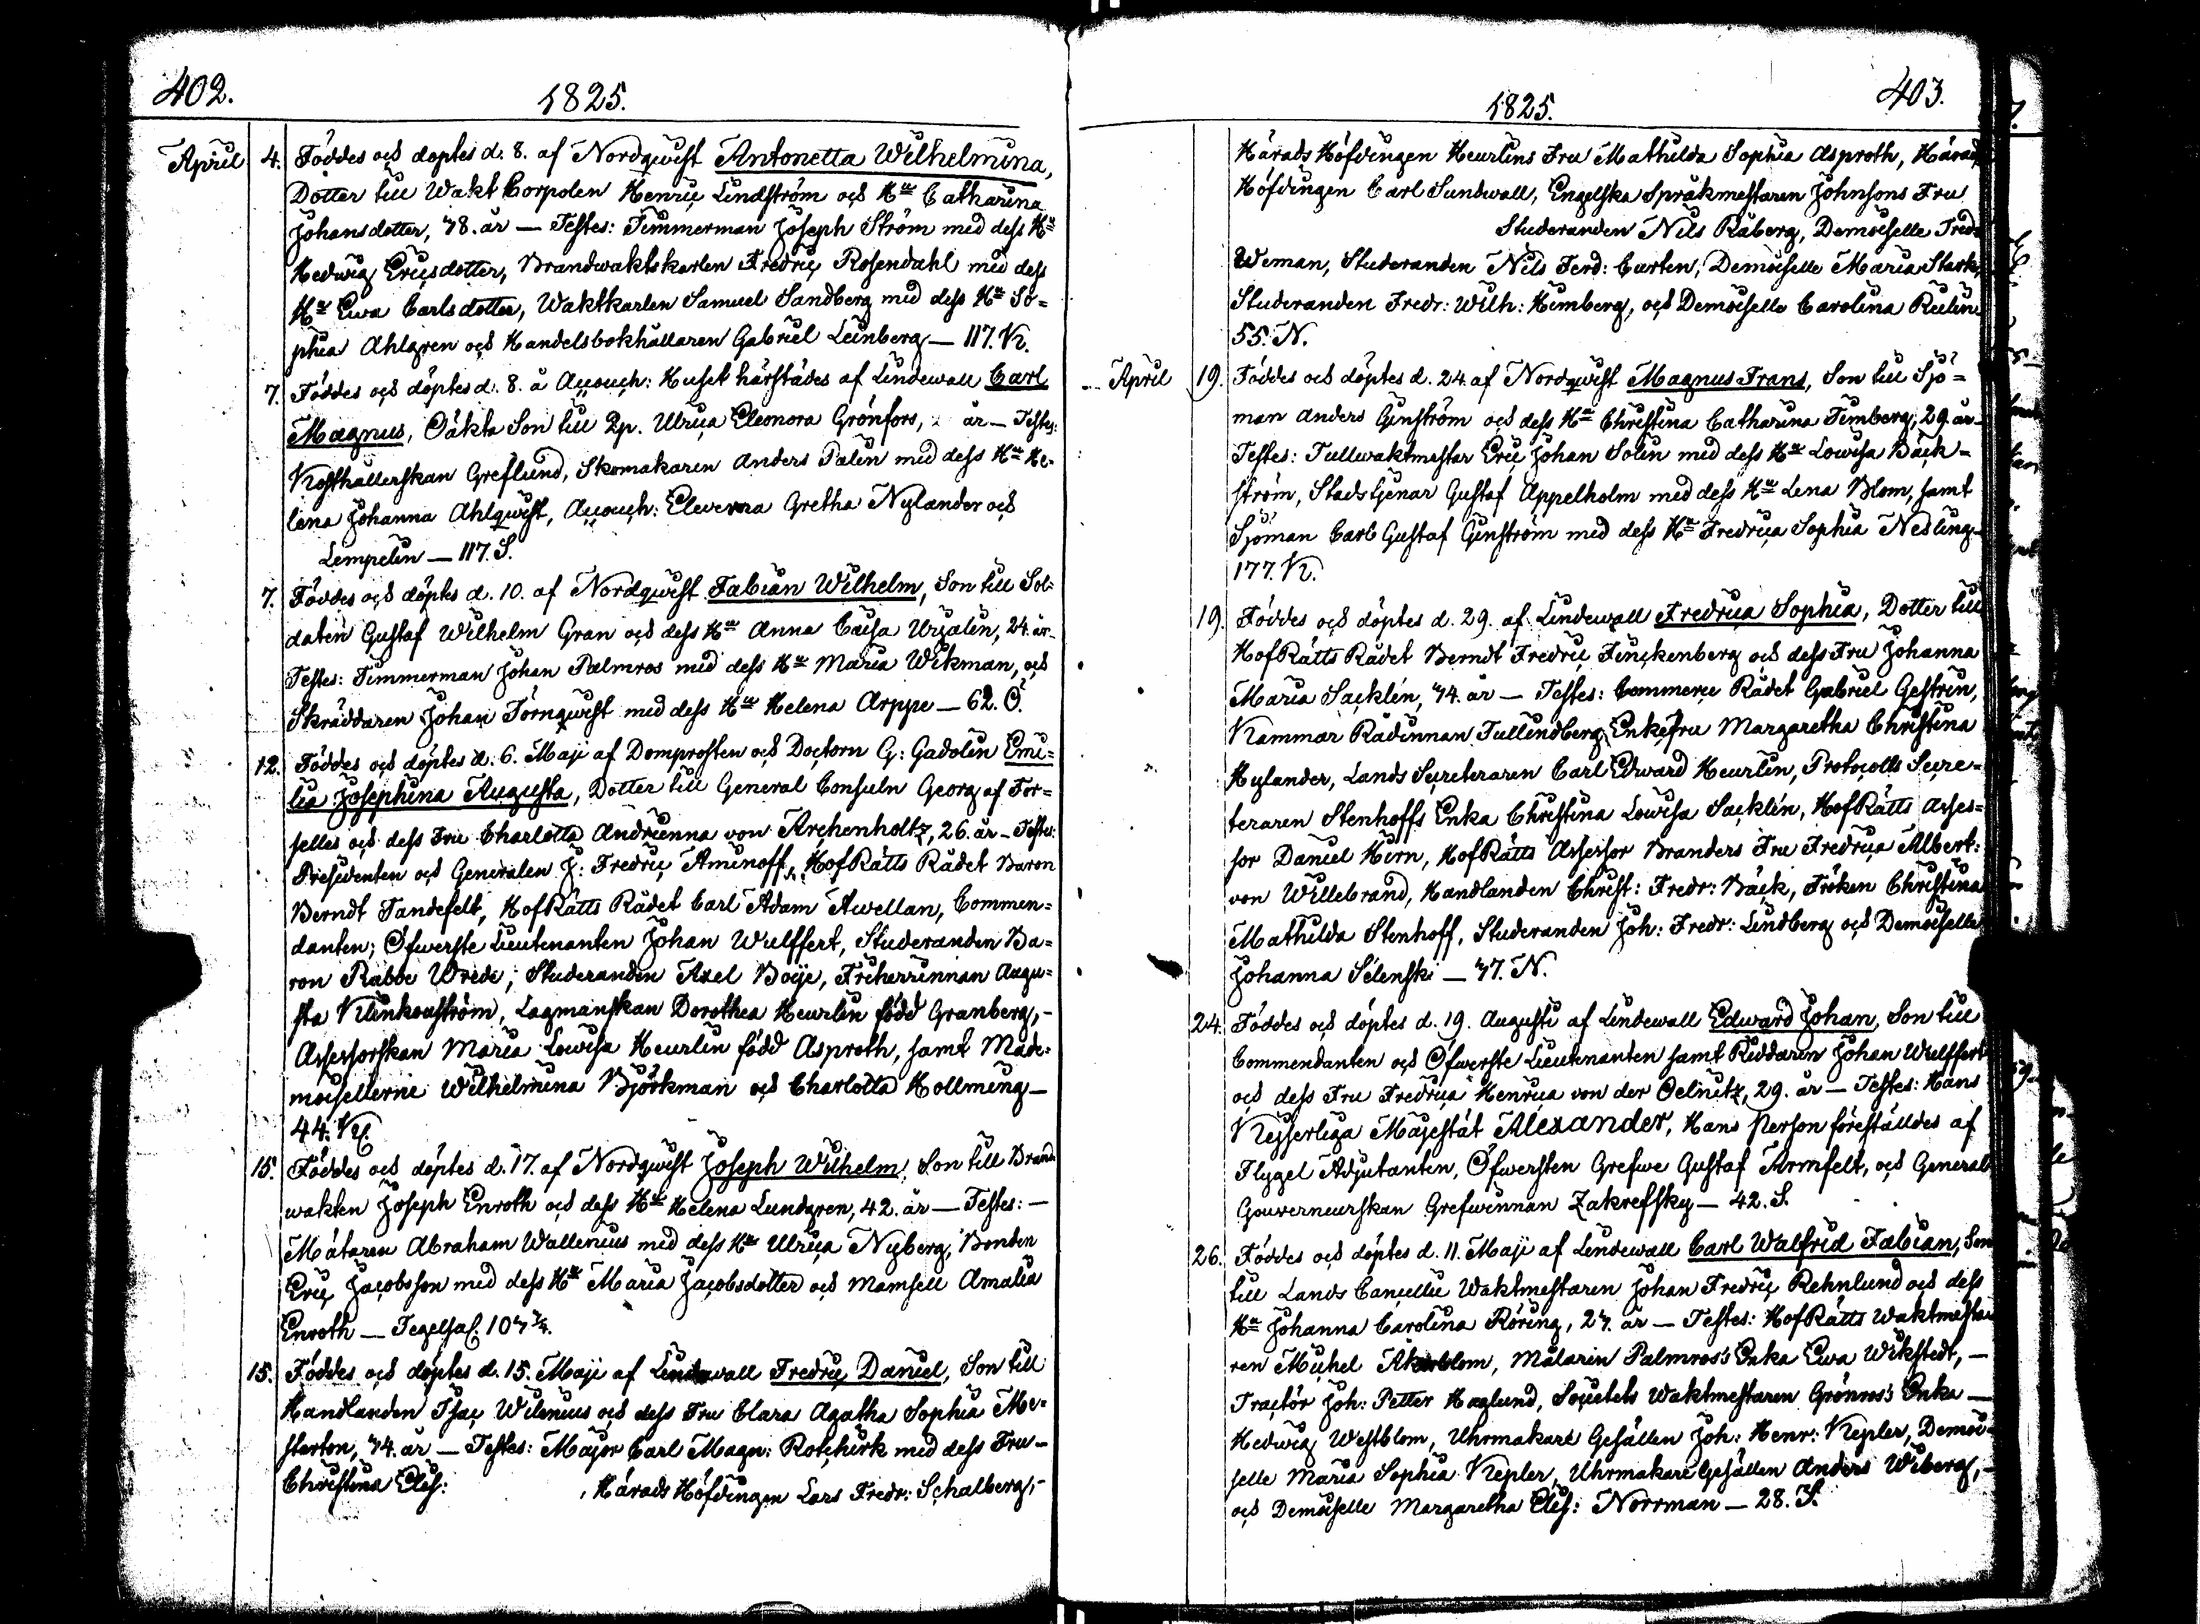 402.
1825.
April 4. Föddes och döptes d. 8. af Nordqwist Antonetta Wilhelmina,
Dotter till Wakt Corpolen Henric Lindström och Hu Catharina
Johansdotter, 78. år — Testes: Timmerman Joseph Ström med dess Hu
Hedwig Ericsdotter, Brandwaktskarlen Fredric Rosendahl med dess
Hu Ewa Carlsdotter, Waktkarlen Samuel Sandberg med dess Hu So=
phia Ahlgren och Handelsbokhållaren Gabriel Leinberg — 117. K.
7. Föddes och döptes d. 8. å Accouch: Huset härstädes af Lindewall Carl
Magnus, Oäkta Son till Qp. Ulrica Eleonora Grönfors, år — Testes:
Kosthållerskan Greflund, Skomakaren Anders Palin med dess Hu He-
lena Johanna Ahlqwist, Accouch: Eleverna Gretha Nylander och
Lempelin — 117. S.
7. Föddes och döptes d. 10. af Nordqwist Fabian Wilhelm, Son till Sol-
daten Gustaf Wilhelm Gran och dess Hu Anna Caisa Urzelin, 24. år —
Testes: Timmerman Johan Palmros med dess Hu Maria Wikman, och
Skräddaren Johan Törnqwist med dess Hu Helena Arppe — 62. Ö.
12. Föddes och döptes d. 6. Maji af Domprosten och Doctorn G: Gadolin Emi=
lia Josephina Augusta, Dotter till General Consuln Georg af For=
selles och dess Fru Charlotta Andrienna von Archenholtz, 26. år — Testes:
Presidenten och Generalen J: Fredric Aminoff, HofRätts Rådet Baron
Berndt Tandefelt, HofRätts Rådet Carl Adam Awellan, Commen=
danten; Öfwerste Lieutenanten Johan Wulffert, Studeranden Ba=
ron Rabbe Wrede, Studeranden Axel Boije, Friherrinnan Augu=
sta Klinkowström, Lagmanskan Dorothea Heurlin född Granberg, -
Assessorskan Maria Lowisa Heurlin född Asproth, samt Made=
moisellerne Wilhelmina Björkman och Charlotta Hollming —
44. Kl.
15. Föddes och döptes d. 17. af Nordqwist Joseph Wilhelm, Son till Brand
wakten Joseph Enroth och dess Hu Helena Lundgren, 42. år — Testes: —
Mätaren Abraham Wallenius med dess Hu Ulrica Nyberg, Bonden
Eric Jacobsson med dess Hu Maria Jacobsdotter och Mamsell Amalia
Enroth — Tegelsal. 107 3/4.
15. Föddes och döptes d. 15. Maji af Lindewall Fredric Daniel, Son till
Handlanden Isac Wilenius och dess Fru Clara Agatha Sophia Me-
sterton, 74. år — Testes: Major Carl Magn: Rotkirk med dess Fru -
Christina Elis: , Härads Höfdingen Lars Fredr: Schalberg, -
403.
1825.
Härads Höfdingen Heurlins Fru Mathilda Sophia Asproth, Härads
Höfdingen Carl Sundwall, Engelska Språkmestaren Johnsons Fru
Studeranden Nils Råberg, Demoiselle Fred:
Weman, Studeranden Nils Ferd: Carten, Demoiselle Maria Stark,
Studeranden Fredr: Wilh: Himberg, och Demoiselle Carolina Rulin
55. N.
April 19. Föddes och döptes d. 24. af Nordqwist Magnus Frans, Son till Sjö=
man Anders Ginström och dess Hu Christina Catharina Timberg, 29. år -
Testes: Tullwaktmestar Eric Johan Solin med dess Hu Lowisa Bäck=
ström, Stadstjenar Gustaf Appelholm med dess Hu Lena Blom, samt
Sjöman Carl Gustaf Ginström med dess Hu Fredrica Sophia Nedling -
177. K.
19. Föddes och döptes d. 29. af Lindewall Fredrica Sophia, Dotter till
HofRätts Rådet Berndt Fredric Finckenberg och dess Fru Johanna
Maria Sacklén, 74. år — Testes: Commerce Rådet Gabriel Gestrin,
Kammar Rådinnan Tullindberg, Enkefru Margaretha Christina
Hylander, Lands Secreteraren Carl Edward Heurlin, Protocolls Secre=
teraren Stenhoffs Enka Christina Lowisa Sacklén, HofRätts Asses=
sor Daniel Hirn, HofRätts Assessor Branders Fru Fredrica Albert:
von Willebrand, Handlanden Christ: Fredr: Bäck, Fröken Christina
Mathilda Stenhoff, Studeranden Joh: Fredr: Lindberg och Demoiselle
Johanna Sélenski — 77. N.
24. Föddes och döptes d. 19. Augusti af Lindewall Edward Johan, Son till
Commendanten och Öfwerste Lieutenanten samt Riddaren Johan Wulffert
och dess Fru Fredrica Henrica von der Oelnitz, 29. år — Testes: Hans
Kejserliga Majestät Alexander, Hans Person föreställdes af
Flygel Adjutanten, Öfwersten Grefwe Gustaf Armfelt, och General
Gouverneurskan Grefwinnan Zakrefsky — 42. S.
26. Föddes och döptes d. 11. Maji af Lindewall Carl Walfrid Fabian, Son
till Lands Cancellie Waktmestaren Johan Fredric Rehnlund och dess
Hu Johanna Carolina Röring, 27. år — Testes: HofRätts Waktmesta
ren Michel Åkerblom, Målarin Palmros's Enka Ewa Wikstedt, —
Tractör Joh: Petter Haglund, Societets Waktmestaren Grönros's Enka —
Hedwig Westblom, Uhrmakare Gesällen Joh: Henr: Kepler, Demoi=
selle Maria Sophia Kepler, Uhrmakare Gesällen Anders Wiberg, -
och Demoiselle Margaretha Elis: Norrman — 28. S.